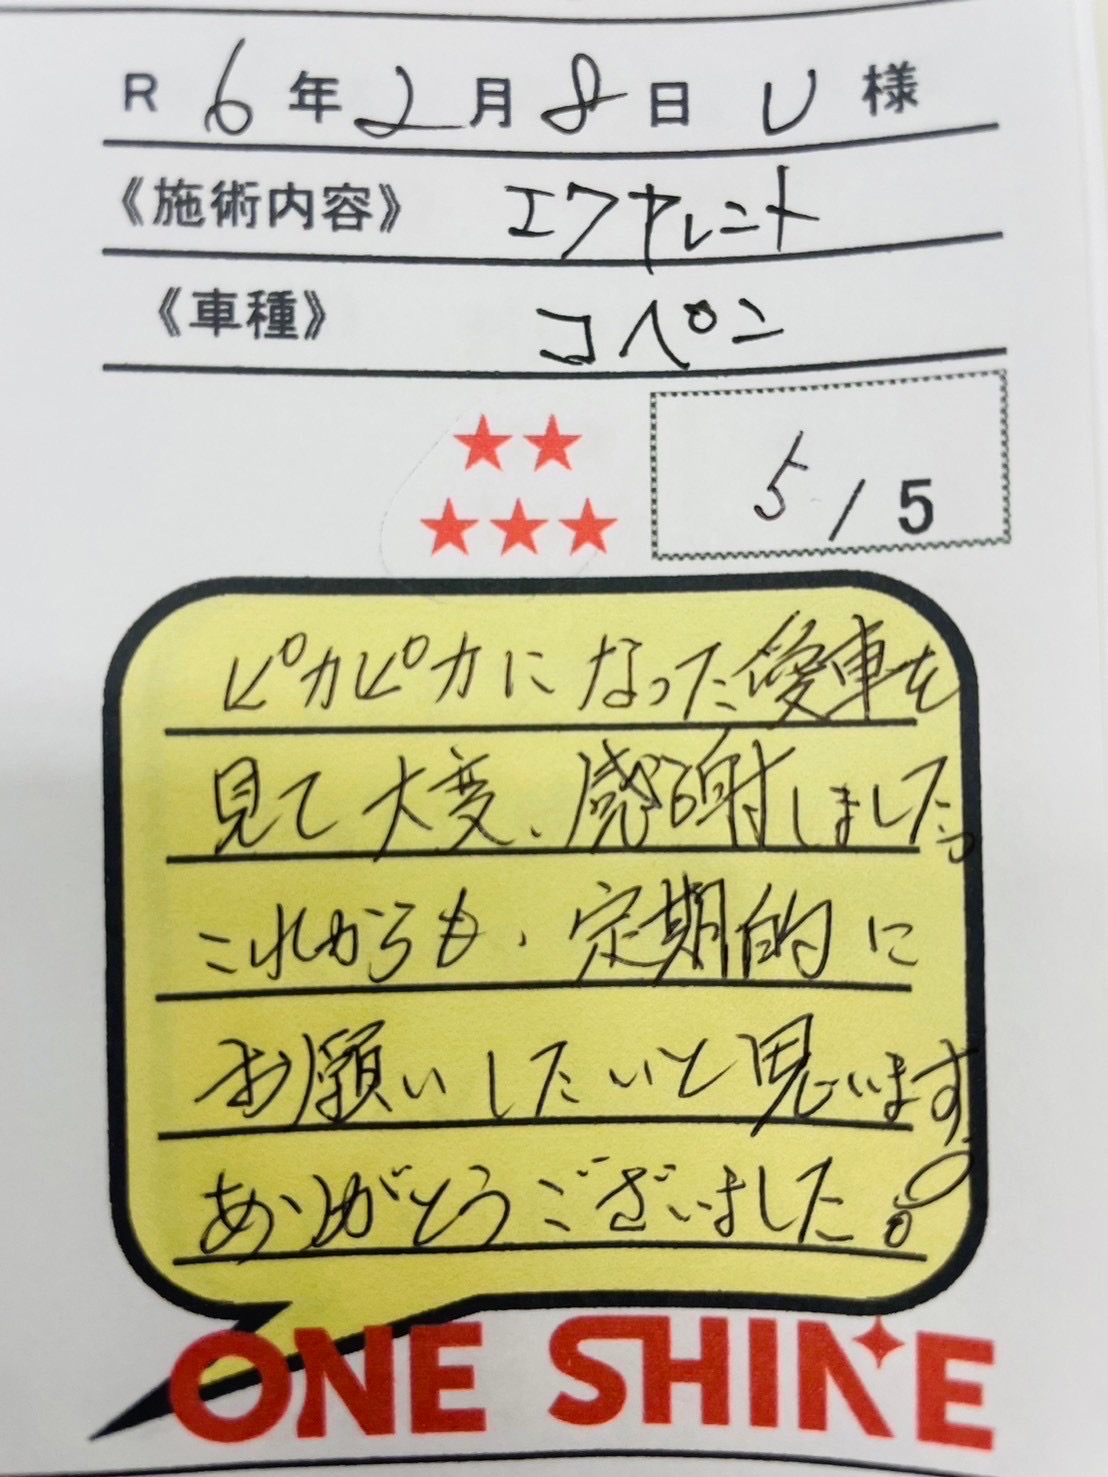 R 6年2月8日 U様
《施術内容》 エクセレント
《車種》 コペン
5/5
ピカピカになった愛車を
見て大変、感謝しました。
これからも、定期的に
お願いしたいと思います。
ありがとうございました!
ONE SHINE